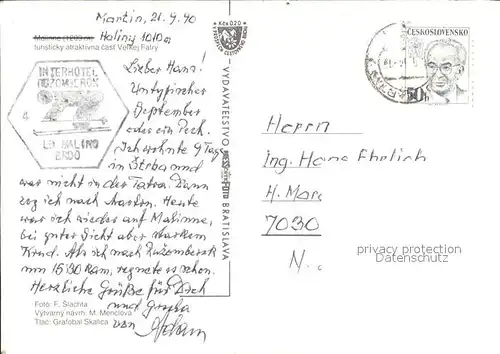 Martin, 21.9.90
Malinne (1209 m)
Maliny 1010 m
turisticky atraktívna časť Veľkej Fatry
Lieber Hans!
Untypischer
September
oder ein Pech.
Ich wohnte 9 Tag
in Štrba und
war nicht in der Tatra. Dann
zog ich nach Martin. Heute
war ich wieder auf Malinne,
bei guter Sicht aber starkem
Wind. Als ich nach Ružomberok
um 15:30 kam, regnete es schon.
Herzliche Grüße für Dich
und
von Adam
Foto: F. Šlachta
Výtvarný návrh: M. Menclová
Tlač: Grafobal Skalica
INTERHOTEL
RUŽOMBEROK
4
Kčs 0,20
VYDAVATEĽSTVO
BRATISLAVA
ČESKOSLOVENSKO
50 h
Herrn
Ing. Hans Ehrlich
H. Marc
7030
N.
privacy protection
Datenschutz